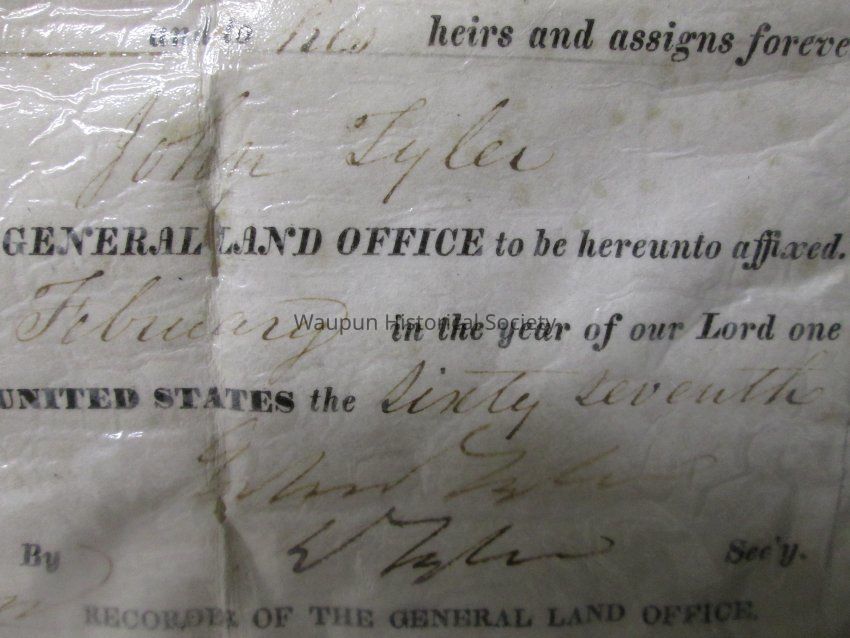 and to his heirs and assigns foreve
John Tyler
GENERAL LAND OFFICE to be hereunto affixed.
February in the year of our Lord one
Waupun Historical Society
UNITED STATES the sixty seventh
John Tyler
By Tyler Sec'y.
RECORDER OF THE GENERAL LAND OFFICE.